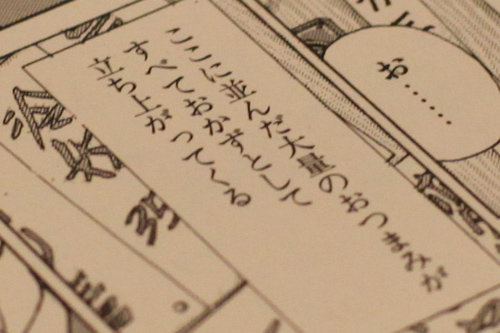 お……
ここに並んだ大量のおつまみが
すべておかずとして
立ち上がってくる